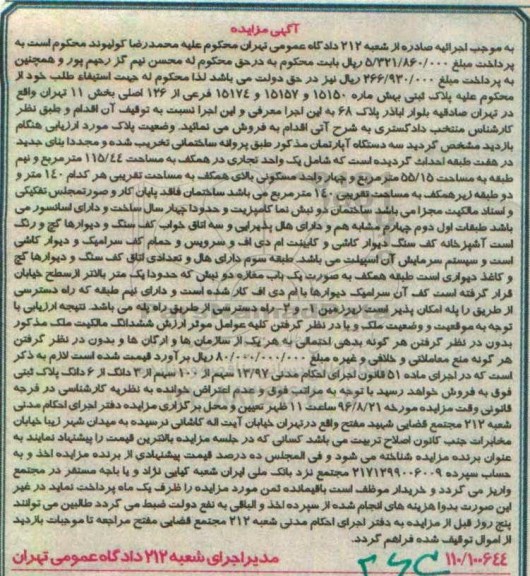 آگهی مزایده
به موجب اجرائیه صادره از شعبه ۲۱۲ دادگاه عمومی تهران محکوم علیه محمدرضا کولیوند محکوم است به
پرداخت مبلغ ۵/۳۲۱/۸۶۰/۰۰۰ ریال بابت محکوم به درحق محکوم له محسن نیم گز رحیم پور و همچنین
به پرداخت مبلغ ۲۶۶/۹۳۰/۰۰۰ ریال نیز در حق دولت می باشد لذا محکوم له جهت استیفاء طلب خود از
محکوم علیه پلاک ثبتی بیش ماره ۱۵۱۵۰ و ۱۵۱۵۷ و ۱۵۱۷۴ فرعی از ۱۲۶ اصلی بخش ۱۱ تهران واقع
در تهران صادقیه بلوار اباذر پلاک ۶۸ به این اجرا معرفی و این اجرا نسبت به توقیف آن اقدام و طبق نظر
کارشناس منتخب دادگستری به شرح آتی اقدام به فروش می نمائید. وضعیت پلاک مورد ارزیابی هنگام
بازدید مشخص گردید سه دستگاه آپارتمان مذکور طبق پروانه ساختمانی تخریب شده و مجددا بنای جدید
در هفت طبقه احداث گردیده است که شامل یک واحد تجاری در همکف به مساحت ۱۱۵/۴۴ مترمربع و نیم
طبقه به مساحت ۵۵/۱۵ مترمربع و چهار واحد مسکونی بالای همکف به مساحت تقریبی هر کدام ۱۴۰ متر و
دو طبقه زیرهمکف به مساحت تقریبی ۱۴۰ مترمربع می باشد ساختمان فاقد پایان کار و صورتمجلس تفکیکی
و اسناد مالکیت مجزا می باشد ساختمان دو نبش نما کامپوزیت و حدودا چهار سال ساخت و دارای آسانسور می
باشد طبقات اول دوم چهارم مشابه هم و دارای هال پذیرایی و سه اتاق خواب کف سنگ و دیوارها گچ و رنگ
است آشپزخانه کف سنگ دیوار کاشی و کابینت ام دی اف و سرویس و حمام کف سرامیک و دیوار کاشی
است و سیستم سرمایش آن اسپیلت می باشد. طبقه سوم دارای هال و تعدادی اتاق کف سنگ و دیوارها گچ
و کاغذ دیواری است طبقه همکف به صورت یک باب مغازه دو نبش که حدودا یک متر بالاتر ازسطح خیابان
قرار گرفته است کف آن سرامیک دیوارها با ام دی اف کار شده است و دارای نیم طبقه که راه دسترسی
از طریق را پله امکان پذیر است زیرزمین اول راه دسترسی از طریق راه پله می باشد. نتیجه ارزیابی با
توجه به موقعیت و وضعیت ملک و با در نظر گرفتن کلیه عوامل موثر ارزش ششدانگ مالکیت ملک مذکور
بدون در نظر گرفتن هر گونه بدهی احتمالی به هر یک از سازمان ها و ارگان ها و بدون در نظر گرفتن
هر گونه منع معاملاتی و خلافی و غیره مبلغ ۸۰/۰۰۰/۰۰۰/۰۰۰ ریال برآورد قیمت شده است لازم به ذکر
است که در اجرای ماده ۵۱ قانون اجرای احکام مدنی ۱۳/۹۷ سهم از ۱۰۰ سهم از ۳ دانگ از ۶ دانگ پلاک ثبتی
فوق به فروش خواهد رسید با توجه به مراتب فوق و عدم اعتراض خوانده به نظریه کارشناسی در فرجه
قانونی وقت مزایده مورخه ۹۶/۸/۲۱ ساعت ۱۱ ظهر تعیین و محل برگزاری مزایده دفتر اجرای احکام مدنی
شعبه ۲۱۲ مجتمع قضایی شهید مفتح واقع درتهران خیابان آیت اله کاشانی نرسیده به میدان شهر زیبا خیابان
مخابرات جنب کانون اصلاح تربیت می باشد کسانی که در جلسه مزایده بالاترین قیمت را پیشنهاد نمایند به
عنوان برنده مزایده شناخته می شود و فی المجلس ده درصد قیمت پیشنهادی از برنده مزایده اخذ و به
حساب سپرده ۲۱۷۱۲۹۹۰۰۶۰۰۹ مجتمع نزد بانک ملی ایران شعبه کیایی نژاد و یا باجه مستقر در مجتمع
واریز می گردد و خریدار موظف است باقیمانده ثمن مورد مزایده را ظرف یک ماه پرداخت نماید در غیر
این صورت بدوا هزینه های انجام شده از سپرده اخذ و الباقی به نفع دولت ضبط می گردد طالبین می توانند
پنج روز قبل از مزایده به دفتر اجرای احکام مدنی شعبه ۲۱۲ مجتمع قضایی مفتح مراجعه تا موجبات بازدید
از اموال توقیف شده فراهم گردد.
۱۱۰/۱۰۰۶۴۴ مدیر اجرای شعبه ۲۱۲ دادگاه عمومی تهران